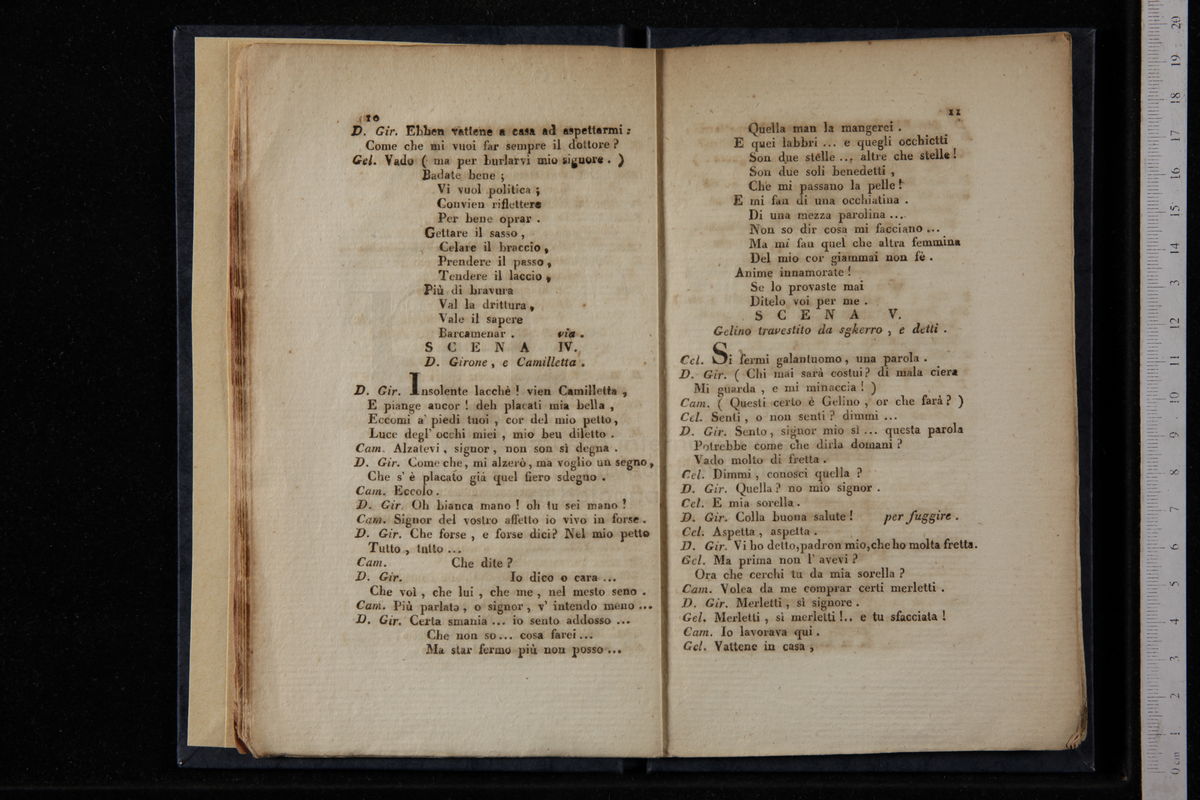 10
D. Gir. Ebben vattene a casa ad aspettarmi:
Come che mi vuoi far sempre il dottore?
Gel. Vado ( ma per burlarvi mio signore. )
Badate bene ;
Vi vuol politica ;
Convien riflettere
Per bene oprar .
Gettare il sasso ,
Celare il braccio ,
Prendere il passo ,
Tendere il laccio ,
Più di bravura
Val la drittura ,
Vale il sapere
Barcamenar . via .
SCENA IV.
D. Girone , e Camilletta .
D. Gir. Insolente lacchè ! vien Camilletta ,
E piange ancor ! deh placati mia bella ,
Eccomi a' piedi tuoi , cor del mio petto,
Luce degl' occhi miei , mio beu diletto .
Cam. Alzatevi , signor , non son sì degna .
D. Gir. Come che, mi alzerò, ma voglio un segno,
Che s' è placato già quel fiero sdegno .
Cam. Eccolo .
D. Gir. Oh bianca mano ! oh tu sei mano !
Cam. Signor del vostro affetto io vivo in forse .
D. Gir. Che forse , e forse dici? Nel mio petto
Tutto , tutto ...
Cam. Che dite ?
D. Gir. Io dico o cara ...
Che voi , che lui , che me , nel mesto seno .
Cam. Più parlate , o signor , v' intendo meno ...
D. Gir. Certa smania ... io sento addosso ...
Che non so ... cosa farei ...
Ma star fermo più non posso ...
11
Quella man la mangerei .
E quei labbri ... e quegli occhietti
Son due stelle ... altre che stelle !
Son due soli benedetti ,
Che mi passano la pelle !
E mi fan di una occhiatina .
Di una mezza parolina ...
Non so dir cosa mi facciano ...
Ma mi fau quel che altra femmina
Del mio cor giammai non fè .
Anime innamorate !
Se lo provaste mai
Ditelo voi per me .
SCENA V.
Gelino travestito da sgherro , e detti .
Cel. Si fermi galantuomo , una parola .
D. Gir. ( Chi mai sarà costui? di mala ciera
Mi guarda , e mi minaccia ! )
Cam. ( Questi certo è Gelino , or che farà ? )
Cel. Senti , o non senti ? dimmi ...
D. Gir. Sento, signor mio sì ... questa parola
Potrebbe come che dirla domani ?
Vado molto di fretta .
Cel. Dimmi , conosci quella ?
D. Gir. Quella ? no mio signor .
Cel. E mia sorella .
D. Gir. Colla buona salute ! per fuggire .
Cel. Aspetta , aspetta .
D. Gir. Vi ho detto, padron mio, che ho molta fretta.
Gel. Ma prima non l' avevi ?
Ora che cerchi tu da mia sorella ?
Cam. Volea da me comprar certi merletti .
D. Gir. Merletti , sì signore .
Gel. Merletti , sì merletti !.. e tu sfacciata !
Cam. Io lavorava qui .
Gel. Vattene in casa ,
0 cm 1 2 3 4 5 6 7 8 9 10 11 12 13 14 15 16 17 18 19 20